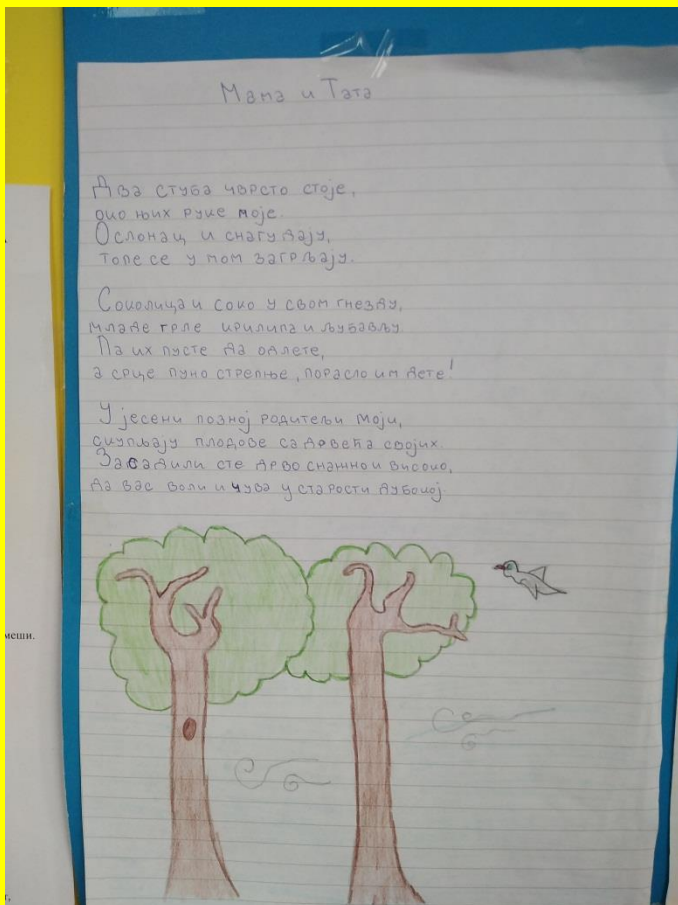 Мама и Тата
Два стуба чврсто стоје,
око њих руке моје.
Ослонац и снагу дају,
топе се у мом загрљају.
Соколица и соко у свом гнезду,
младе грле крилима и љубављу.
Па их пусте да одлете,
а срце пуно стрепње, порасло им дете!
У јесени позној родитељи моји,
скупљају плодове са дрвећа својих.
Засадили сте дрво снажно и високо,
да вас воли и чува у старости дубокој.
меши.